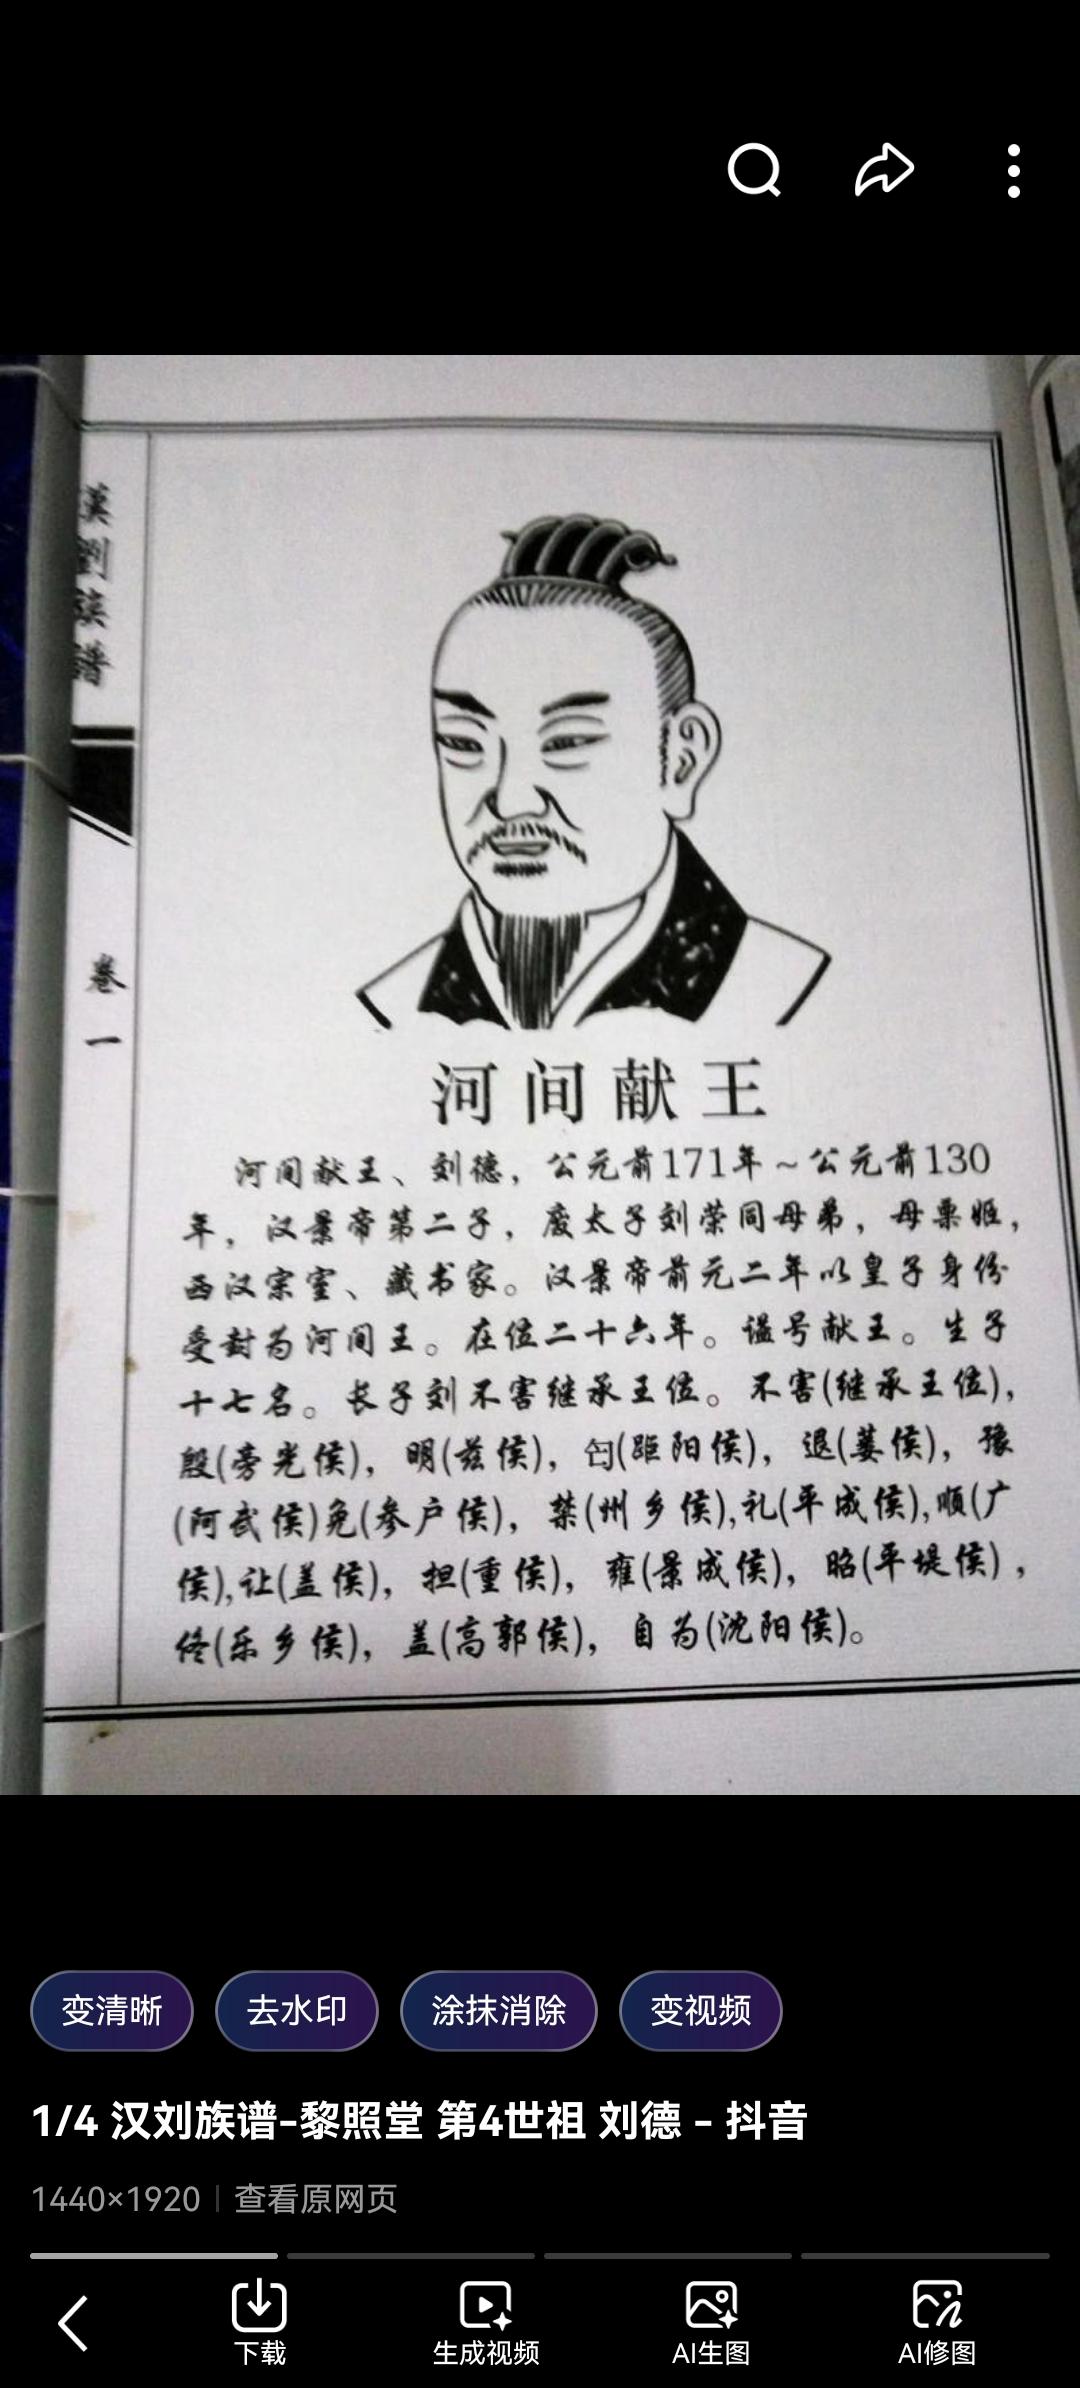 漢劉族譜
卷一
河间献王
河间献王、刘德，公元前171年～公元前130
年，汉景帝第二子，废太子刘荣同母弟，母栗姬，
西汉宗室、藏书家。汉景帝前元二年以皇子身份
受封为河间王。在位二十六年。谥号献王。生子
十七名。长子刘不害继承王位。不害(继承王位)，
殷(旁光侯)，明(兹侯)，匄(距阳侯)，退(蒌侯)，豫
(阿武侯)免(参户侯)，禁(州乡侯),礼(平成侯),顺(广
侯),让(盖侯)，担(重侯)，雍(景成侯)，昭(平堤侯)，
佟(乐乡侯)，盖(高郭侯)，自为(沈阳侯)。
变清晰
去水印
涂抹消除
变视频
1/4 汉刘族谱-黎照堂 第4世祖 刘德 - 抖音
1440×1920 | 查看原网页
下载
生成视频
AI生图
AI修图